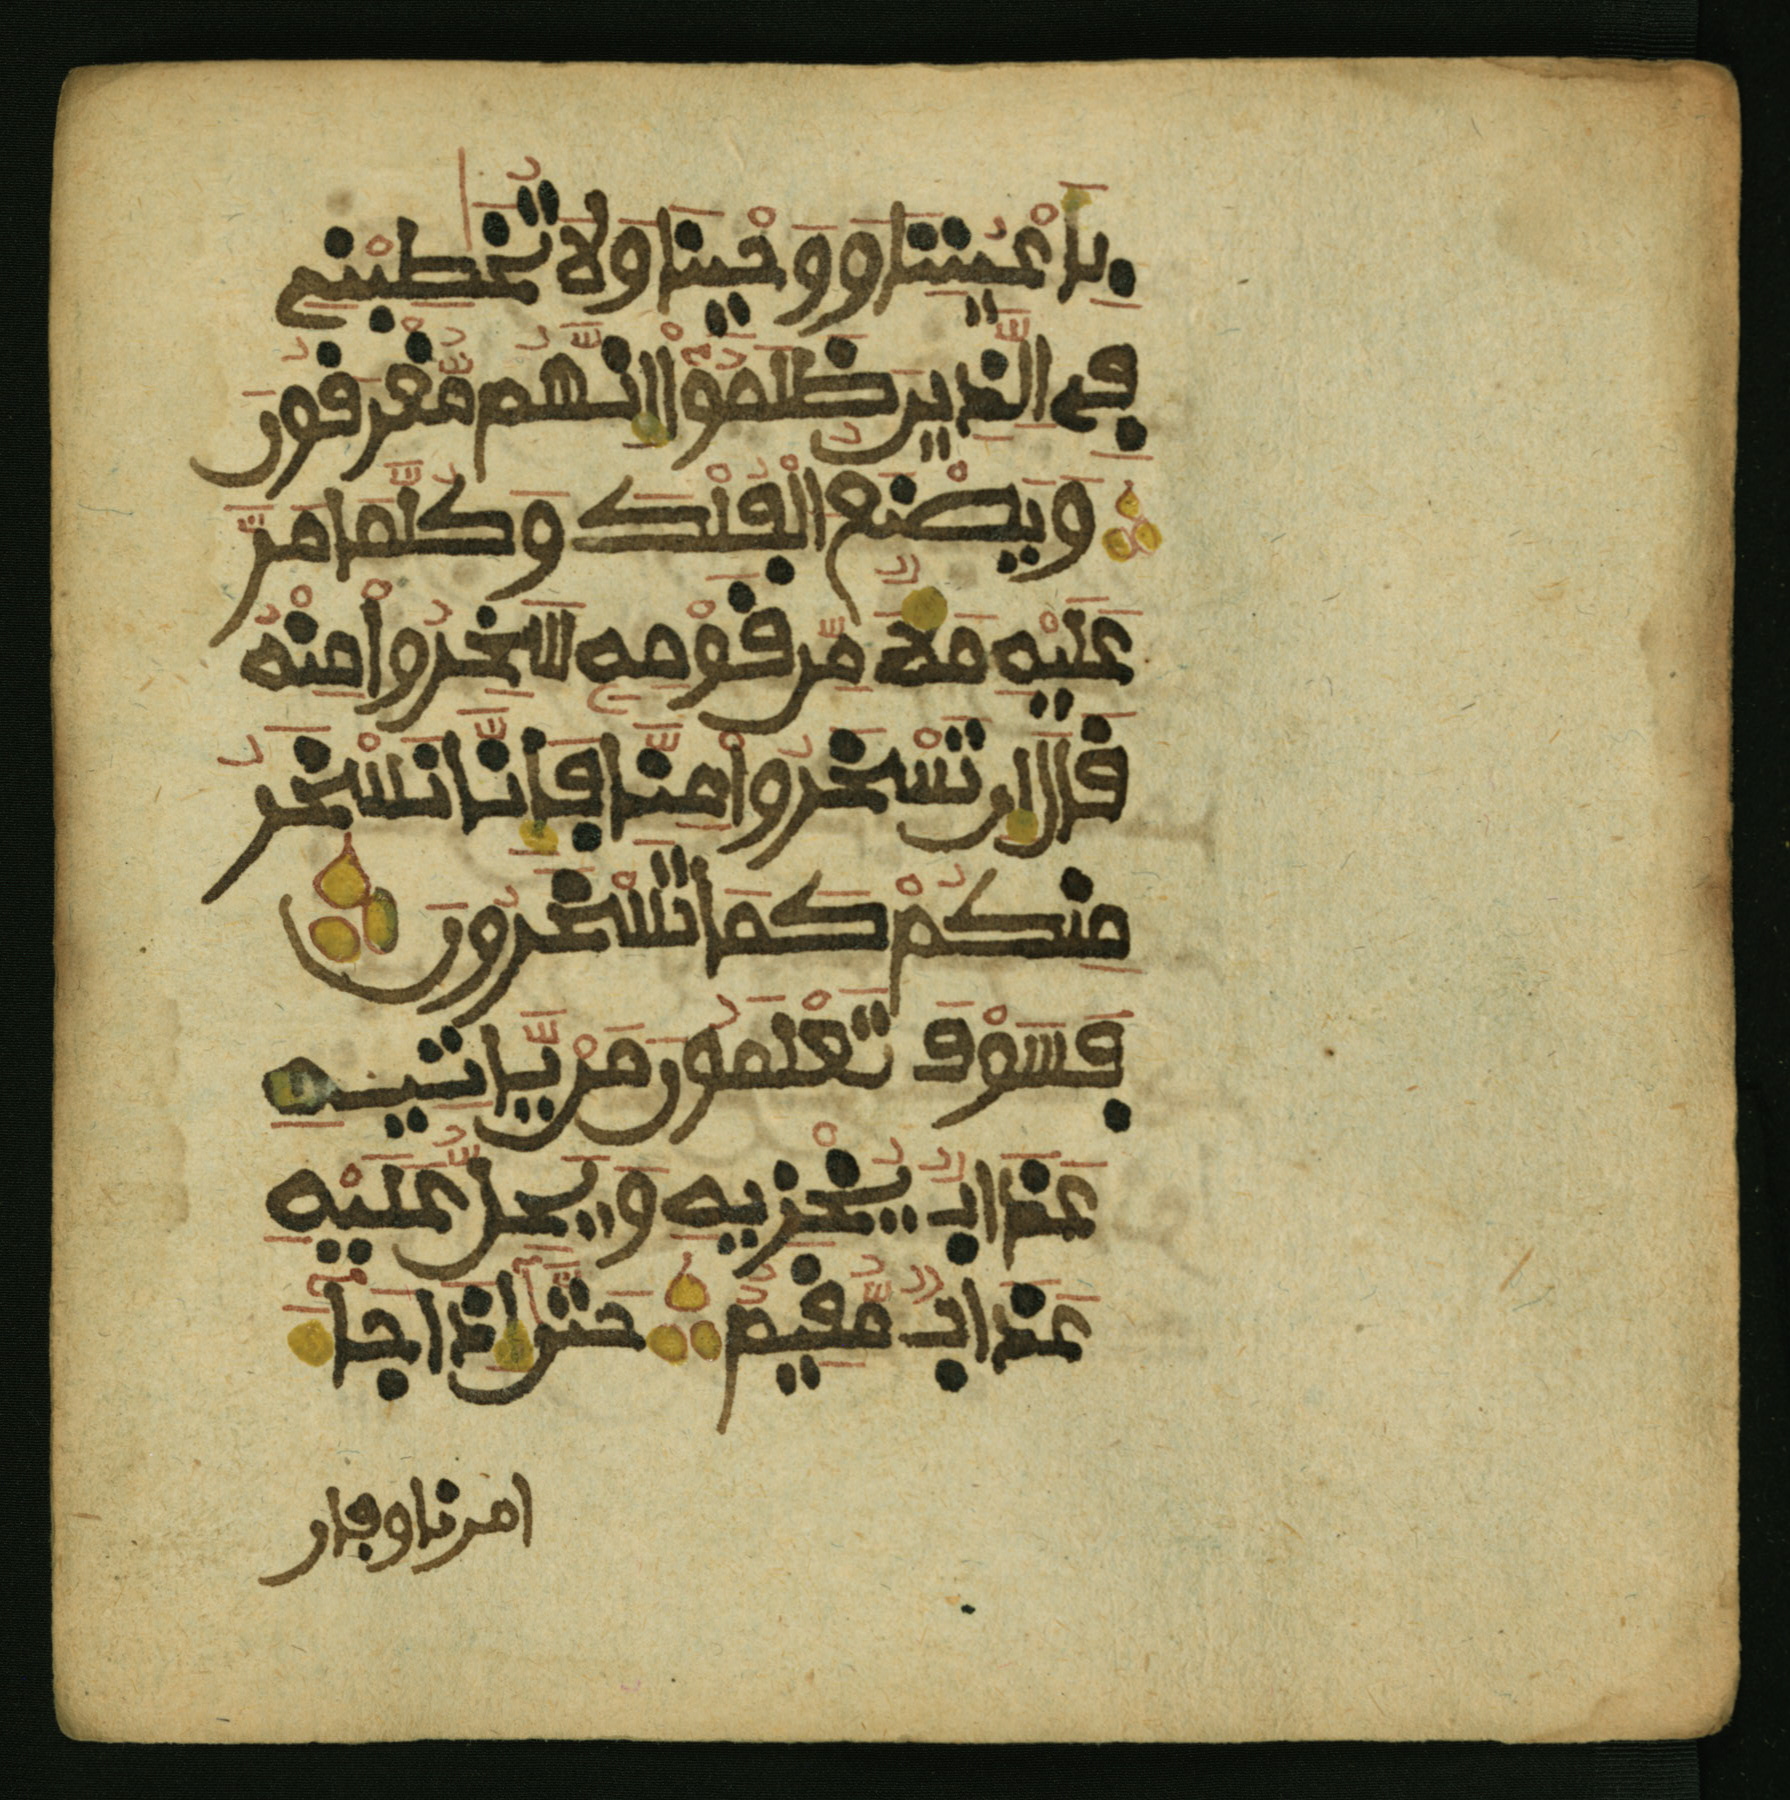 بِأَعْيُنِنَا وَوَحْيِنَا وَلَا تُخَٰطِبْنِے
فِے الَّذِينَ ظَلَمُوٓاْ إِنَّهُم مُّغْرَقُونَ
وَيَصْنَعُ الْفُلْكَ وَكُلَّمَا مَرَّ
عَلَيْهِ مَلَأٌ مِّن قَوْمِهِۦ سَخِرُواْ مِنْهُ
قَالَ إِن تَسْخَرُواْ مِنَّا فَإِنَّا نَسْخَرُ
مِنكُمْ كَمَا تَسْخَرُونَ
فَسَوْفَ تَعْلَمُونَ مَنْ يَّاتِيهِ
عَذَابٌ يُخْزِيهِ وَيَحِلُّ عَلَيْهِ
عَذَابٌ مُّقِيمٌ حَتَّىٰٓ إِذَا جَآءَ
امرنا وفار